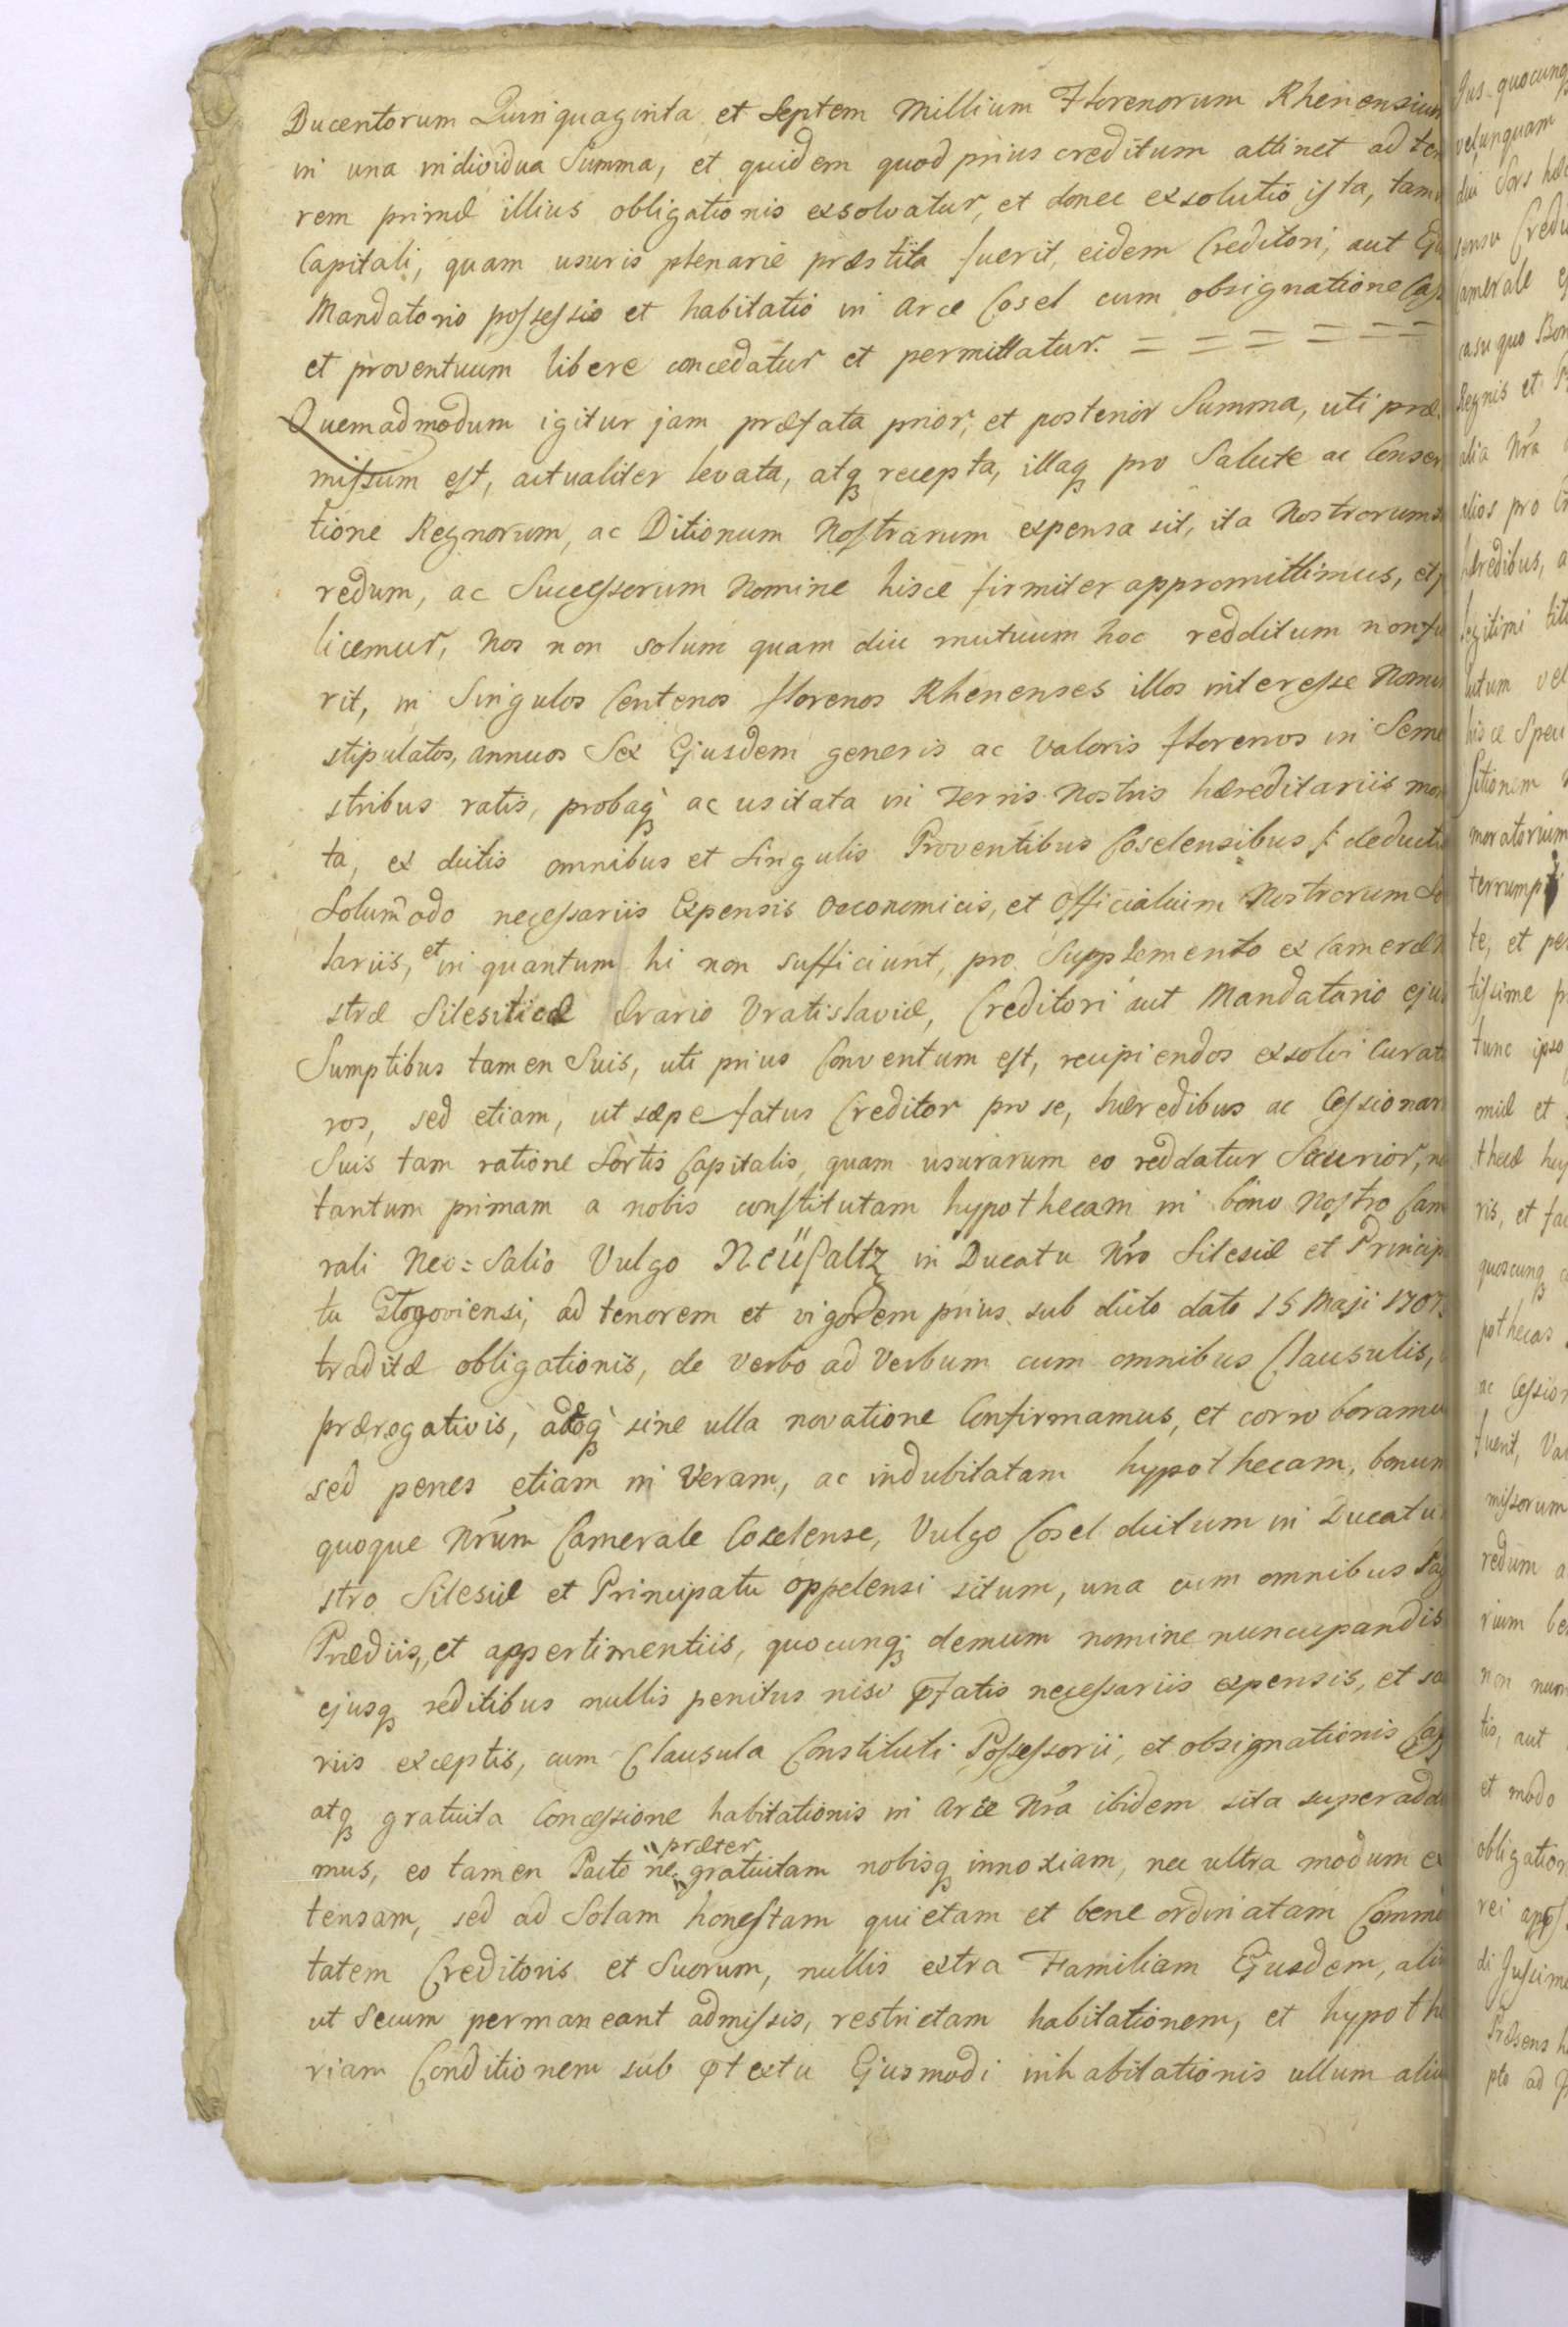 Ducentorum Quinquaginta et Septem Millium Florenorum Rhenensium
in una individua Summa, et quidem quod prius creditum attinet ad
rem primæ illius obligationis exsolvatur, et donec exsolutio ista,
Capitali, quam usuris plenarie præstita fuerit, eidem Creditori, aut
Mandatorio possessio et habitatio in arce Cosel cum obsignatione
et proventuum libere concedatur et permittatur. = = = = = =
Quemadmodum igitur jam præfata prior, et posterior Summa, uti præ
missum est, actualiter levata, atq recepta, illaq pro Salute ac Conser
tione Regnorum, ac Ditionum Nostrarum expensa sit, ita Nostrorum
redum, ac Successorum Nomine hisce firmiter appromittimus, et
licemur, Nos non solum quam diu mutuum hoc redditum non fu
rit, in Singulos Centenos florenos Rhenenses illos interesse Nomi
stipulatos, annuos Sex Ejusdem generis ac Valoris florenos in Seme
stribus ratis, probaq ac usitata in Terris Nostris hæreditariis mon
ta, ex dictis omnibus et Singulis Proventibus Coselensibus /: deductis
Solum̃odo necessariis Expensis Oeconomicis, et Officialium Nostrorum Sa
lariis, et in quantum hi non sufficiunt, pro Supplemento ex Cameræ
stræ Silesiticæ Ærario Vratislaviæ, Creditori aut Mandatario ejus
Sumptibus tamen Suis, uti prius Conventum est, recipiendos exsolvi Curatu
ros, sed etiam, ut sæpe fatus Creditor pro se, hæredibus ac Cessionari
Suis tam ratione Sortis Capitalis, quam usurarum eo reddatur Securior,
tantum primam a nobis constitutam hypothecam in bono Nostro Came
rali Neo=Salio Vulgo Neüsaltz in Ducatu Nr̃o Silesiæ et Principa
tu Glogoviensi, ad tenorem et vigorem prius sub dicto dato 15 Maji 1707
traditæ obligationis, de Verbo ad Verbum cum omnibus Clausulis,
prærogativis, adeoq sine ulla novatione Confirmamus, et corroboramus
sed penes etiam in Veram, ac indubitatam hypothecam, bonum
quoque Nr̃um Camerale Coselense, Vulgo Cosel dictum in Ducatu
stro Silesiæ et Principatu Oppelensi situm, una cum omnibus Pag
Prædiis, et appertinentiis, quocunq demum nomine nuncupandis
ejusq reditibus nullis penitus nisi p̃fatis necessariis expensis, et sa
riis exceptis, cum Clausula Constituti Possessorii, et obsignationis
atq gratuita Concessione habitationis in Arce Nr̃a ibidem sita superadd
mus, eo tamen Pacto ne præter gratuitam nobisq innoxiam, nec ultra modum ex
tensam, sed ad Solam honestam quietam et bene ordinatam Commo
tatem Creditoris et Suorum, nullis extra Familiam Ejusdem,
ut Secum permaneant admissis, restrictam habitationem, et hypothe
riam Conditionem sub p̃textu Ejusmodi inhabitationis ullum